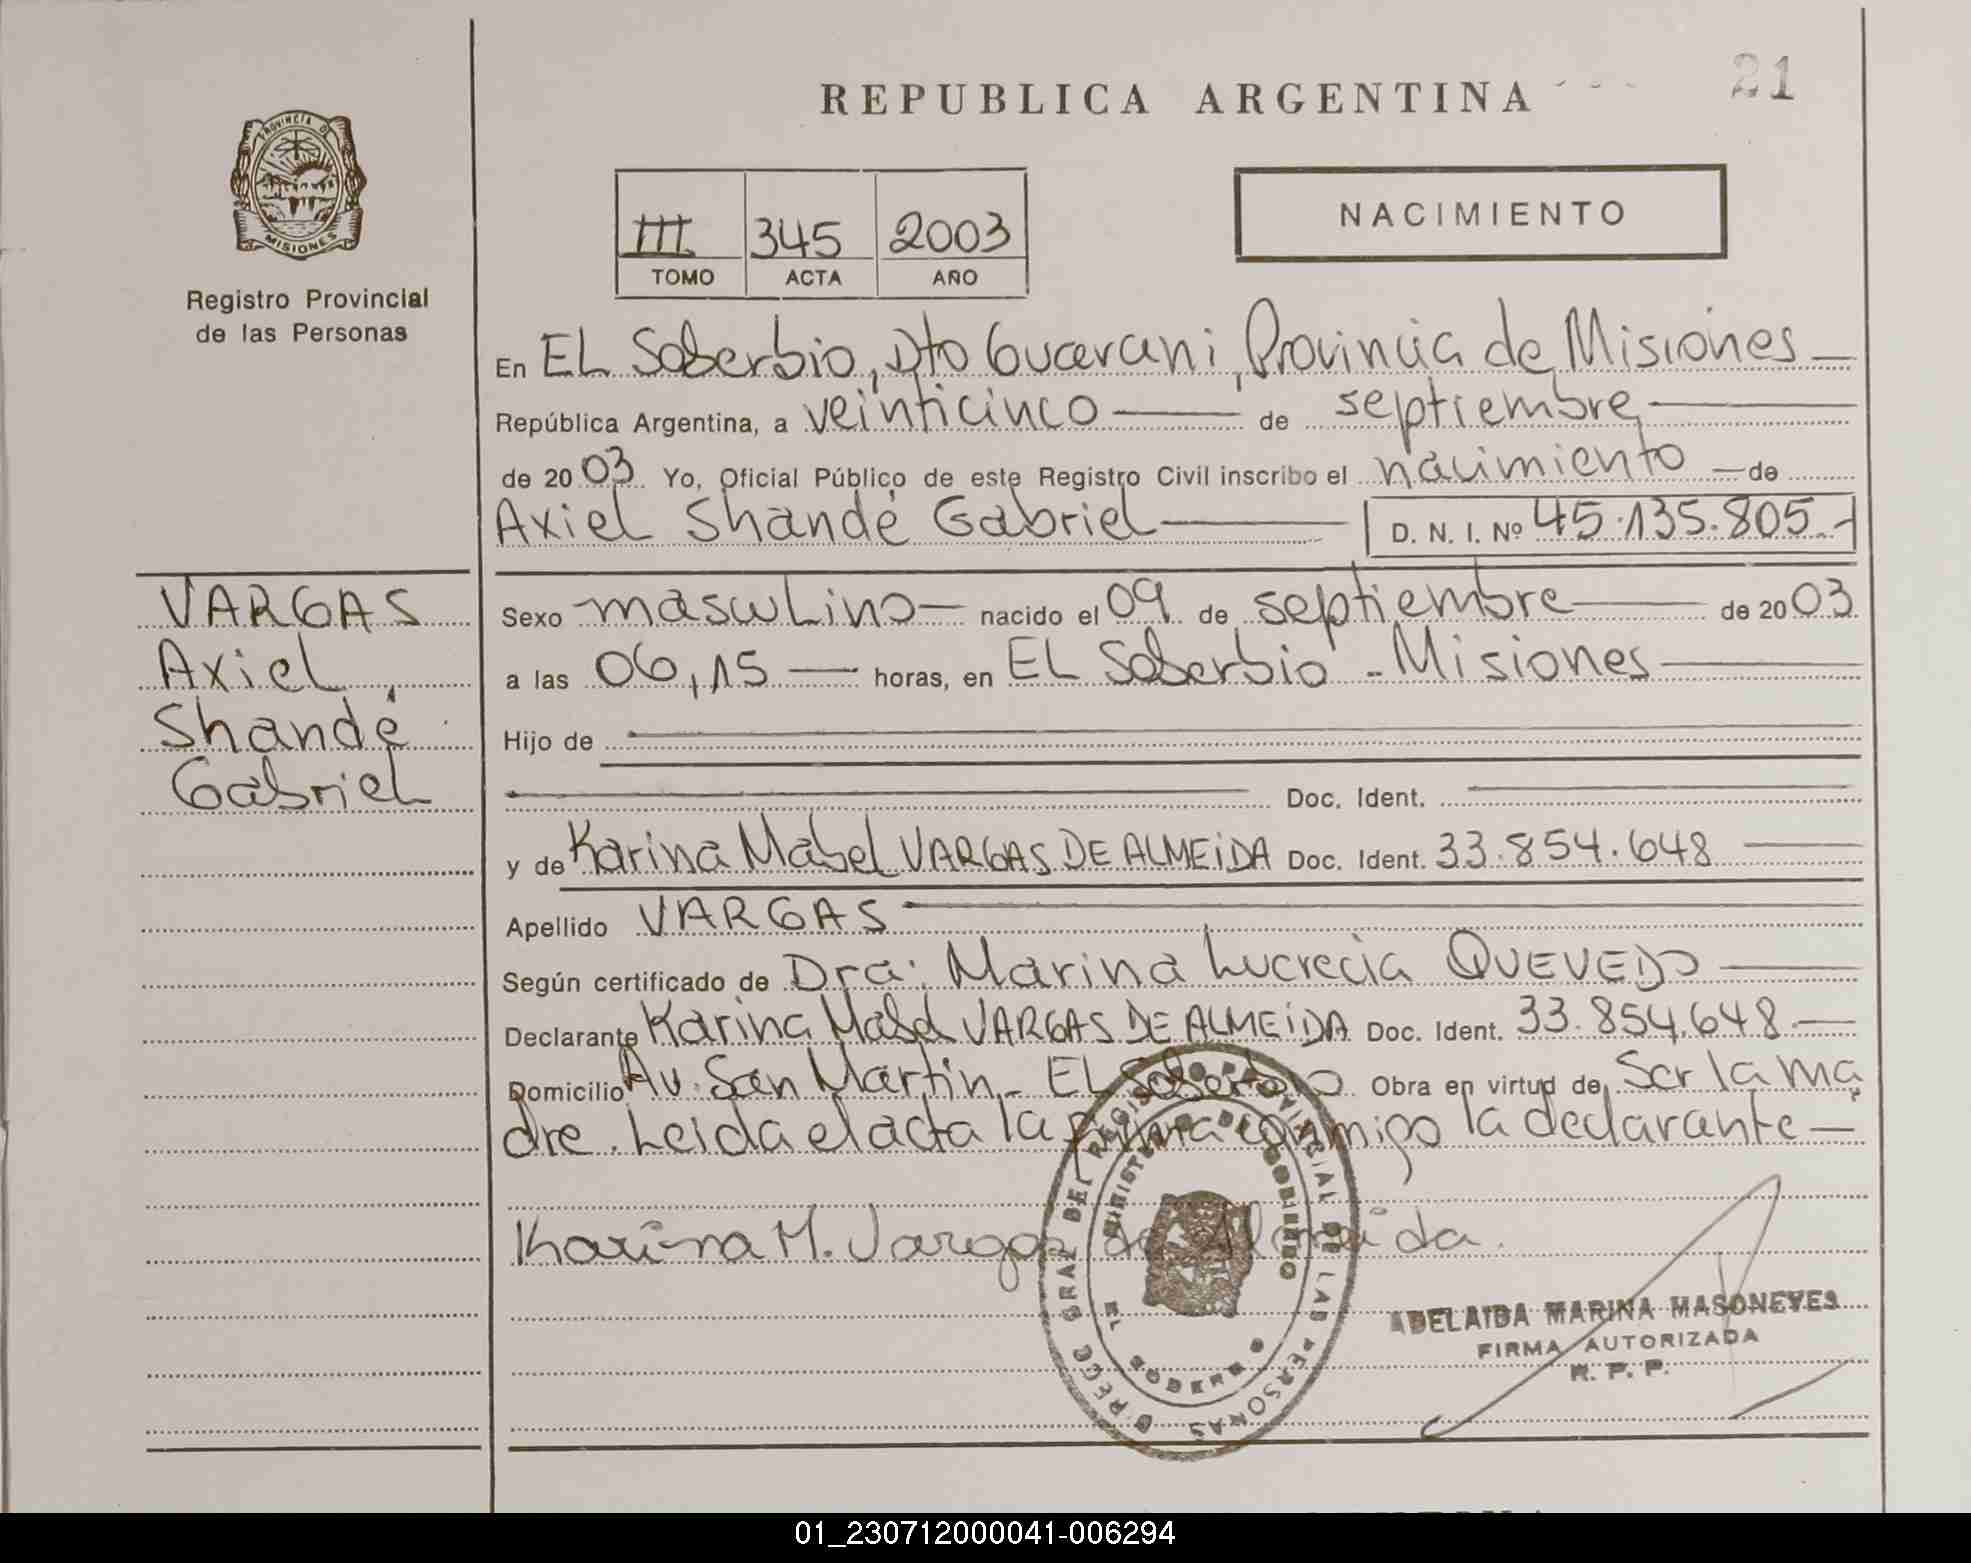 REPUBLICA ARGENTINA
21
PROVINCIA DE
MISIONES
Registro Provincial
de las Personas
III 345 2003
TOMO ACTA AÑO
NACIMIENTO
En EL Soberbio, Dto Guarani, Provincia de Misiones
República Argentina, a veinticinco de septiembre
de 2003 Yo, Oficial Público de este Registro Civil inscribo el nacimiento de
Axiel Shandé Gabriel D. N. I. Nº 45.135.805
VARGAS
Axiel
Shandé
Gabriel
Sexo masculino nacido el 09 de septiembre de 2003
a las 06,15 horas, en EL Soberbio - Misiones
Hijo de
Doc. Ident.
y de Karina Mabel VARGAS DE ALMEIDA Doc. Ident. 33.854.648
Apellido VARGAS
Según certificado de Dra. Marina Lucrecia QUEVEDO
Declarante Karina Mabel VARGAS DE ALMEIDA Doc. Ident. 33.854.648
Domicilio Av. San Martin - EL Soberbio Obra en virtud de Ser la ma
dre. Leida el acta la firma conmigo la declarante
Karina M. Vargas de Almeida.
REGISTRO PROVINCIAL DE LAS PERSONAS
MINISTERIO DE GOBIERNO
EL SOBERBIO
ADELAIDA MARINA MASONEVES
FIRMA AUTORIZADA
R. P. P.
01_230712000041-006294